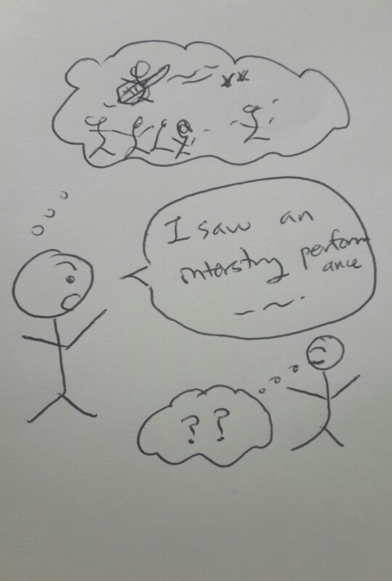 I saw an
interstng perform
ance
? ?